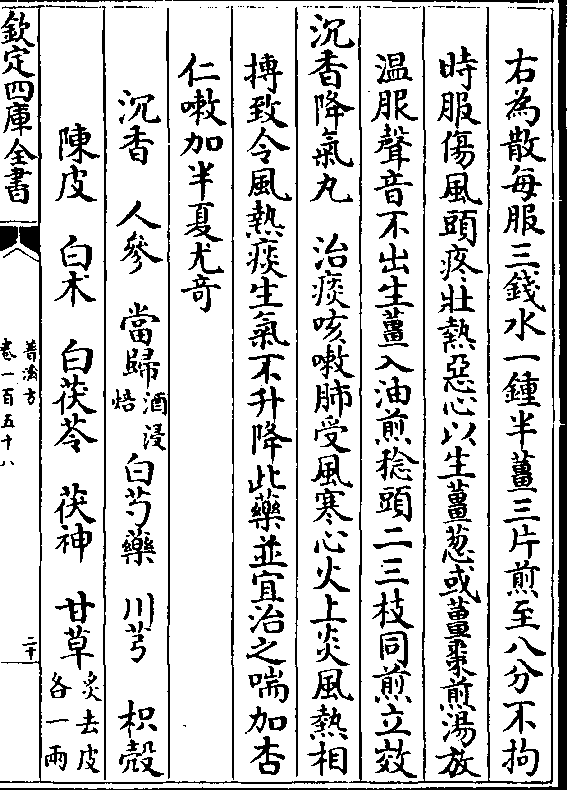 右為散每服三錢水一鍾半薑三片煎至八分不拘
時服傷風頭疼壯熱惡心以生薑葱或薑棗煎湯放
温服聲音不出生薑入油煎稔頭二三枝同煎立效
沉香降氣丸　治痰咳嗽肺受風寒心火上炎風熱相
摶致令風熱痰生氣不升降此藥並宜治之喘加杏
仁嗽加半夏尤竒
沉香　人參　當歸酒浸焙　白芍藥　川芎　枳殼
陳皮　白术　白茯苓　茯神　甘草炙去皮各一兩
欽定四庫全書
普濟方
卷一百五十八
二十